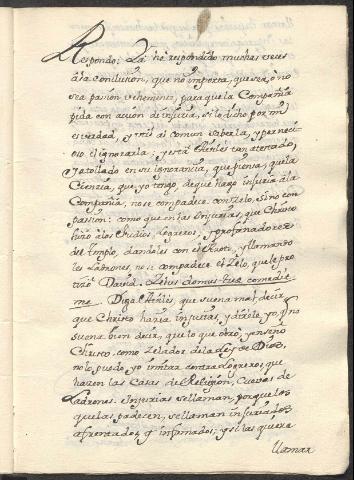 Respondo: Ya hé respondido muchas veces
à la conclusion, que no importa, que sea, ò no
sea pasion vehemente, para que la Compañia
pida con accion de injuria, si lo dicho por mi
es verdad, y útil al comun saberla, y pernici-
oso el ignorarla: y está Athlés tan aterrado,
y atollado en su ignorancia, que piensa, que la
Ciencia, que yo tengo, de que hago injuria à la
Compañia, no se compadece con zelo, sino con
passion: como que en las Injurias, que Christo
hizo à los Judios, Logreros, y profanadores
del Templo, dandoles con el Azote, y llamando
les Ladrones, no se compadece el Zelo, que le pro
fetizò David. Zelus domus tuæ comedit
me. Diga Athlés, que suena mal, decir,
que Christo hacia injurias, y direle, yo, q̃ no
suena bien decir, que lo que obrò, y enseñò
Christo, como Zelador de la Ley de Dios,
no lo puedo yo imitar contra Logreros, que
hazen las Casas de Religion, Cuevas de
Ladrones. Injurias se llaman, porque los
que las padecen, se llaman injuriados,
afrentados, è infamados; y si las quiere
llamar